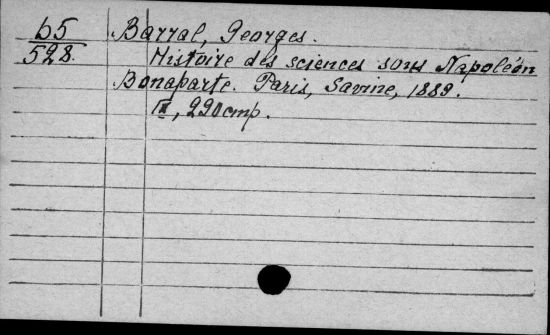 65
528.
Barral, Georges.
Histoire des sciences sous Napoléon
Bonaparte. Paris, Savine, 1889.
III, 290 стр.